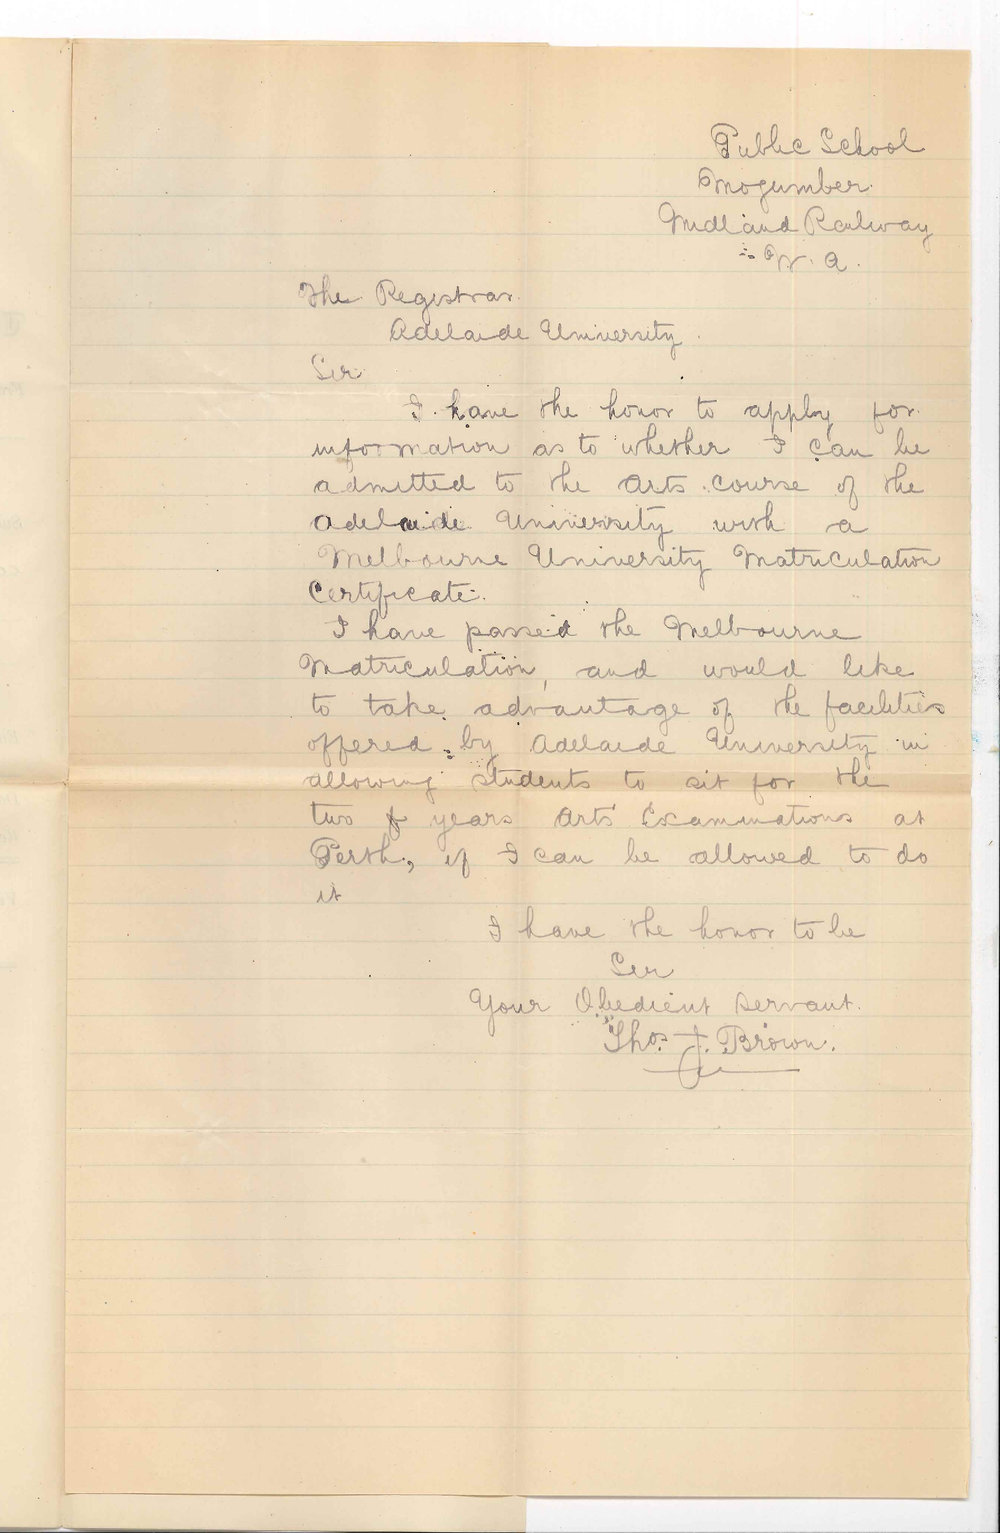 Public School
Mogumber
Midland Railway
W. A.
The Registrar.
Adelaide University.
Sir
I have the honor to apply for
information as to whether I can be
admitted to the Arts course of the
Adelaide University with a
Melbourne University Matriculation
Certificate.
I have passed the Melbourne
Matriculation, and would like
to take advantage of the facilities
offered by Adelaide University in
allowing students to sit for the
two years Arts Examinations at
Perth, if I can be allowed to do
it
I have the honor to be
Sir
Your Obedient Servant.
Thos. J. Brown.